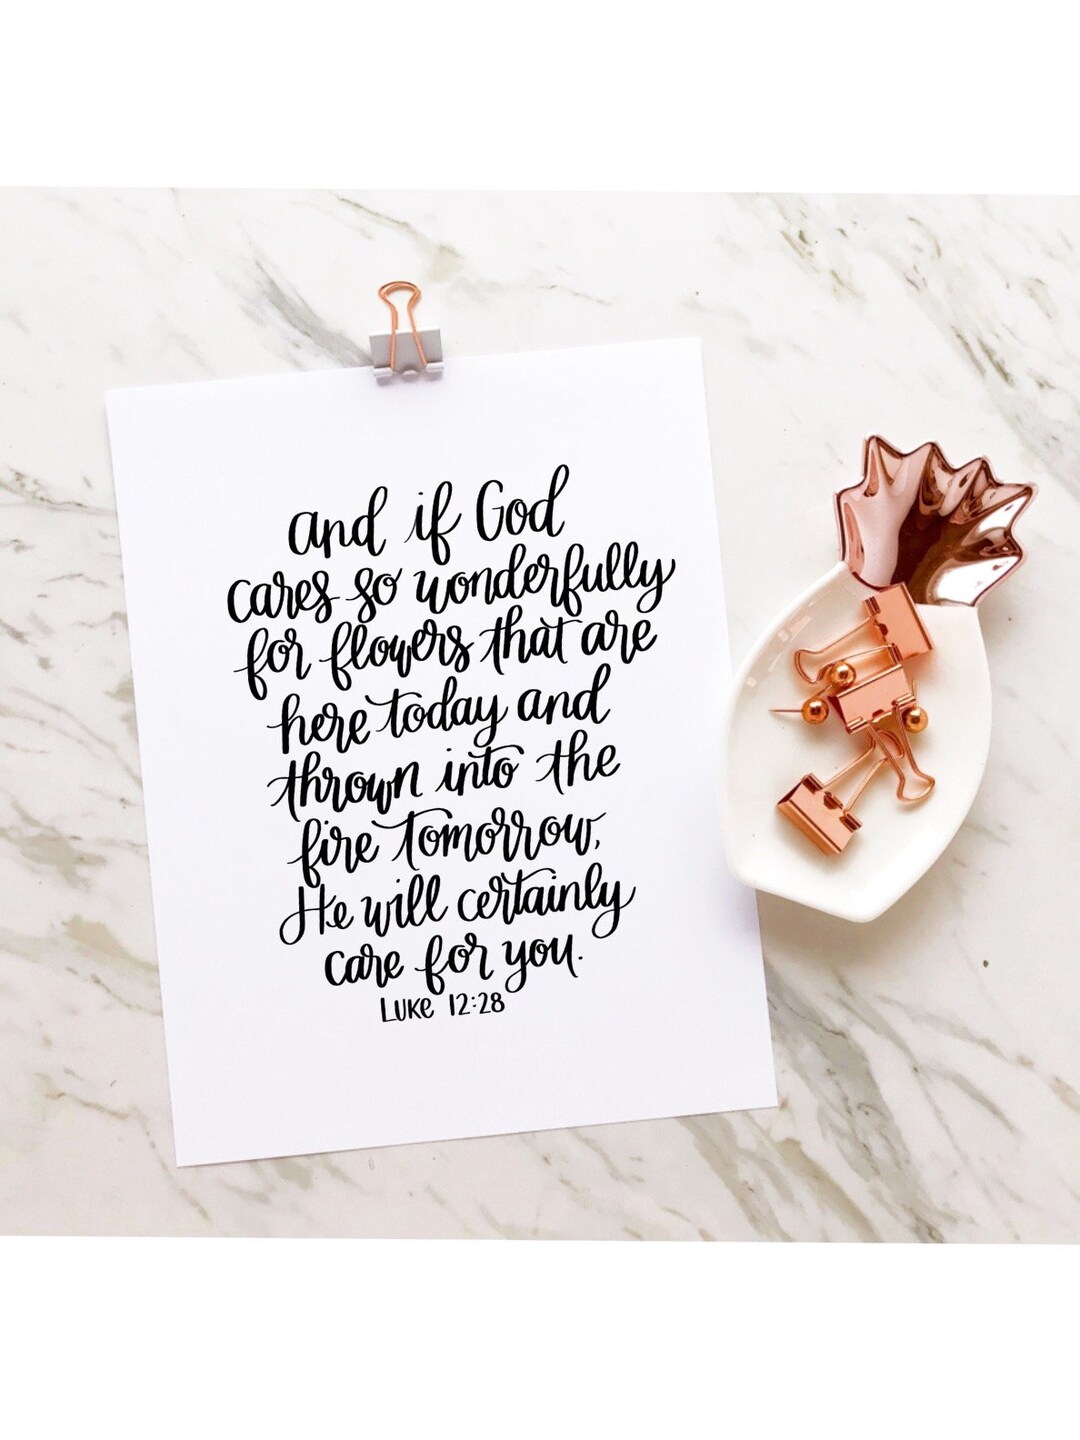 and if God
cares so wonderfully
for flowers that are
here today and
thrown into the
fire tomorrow,
He will certainly
care for you.
Luke 12:28